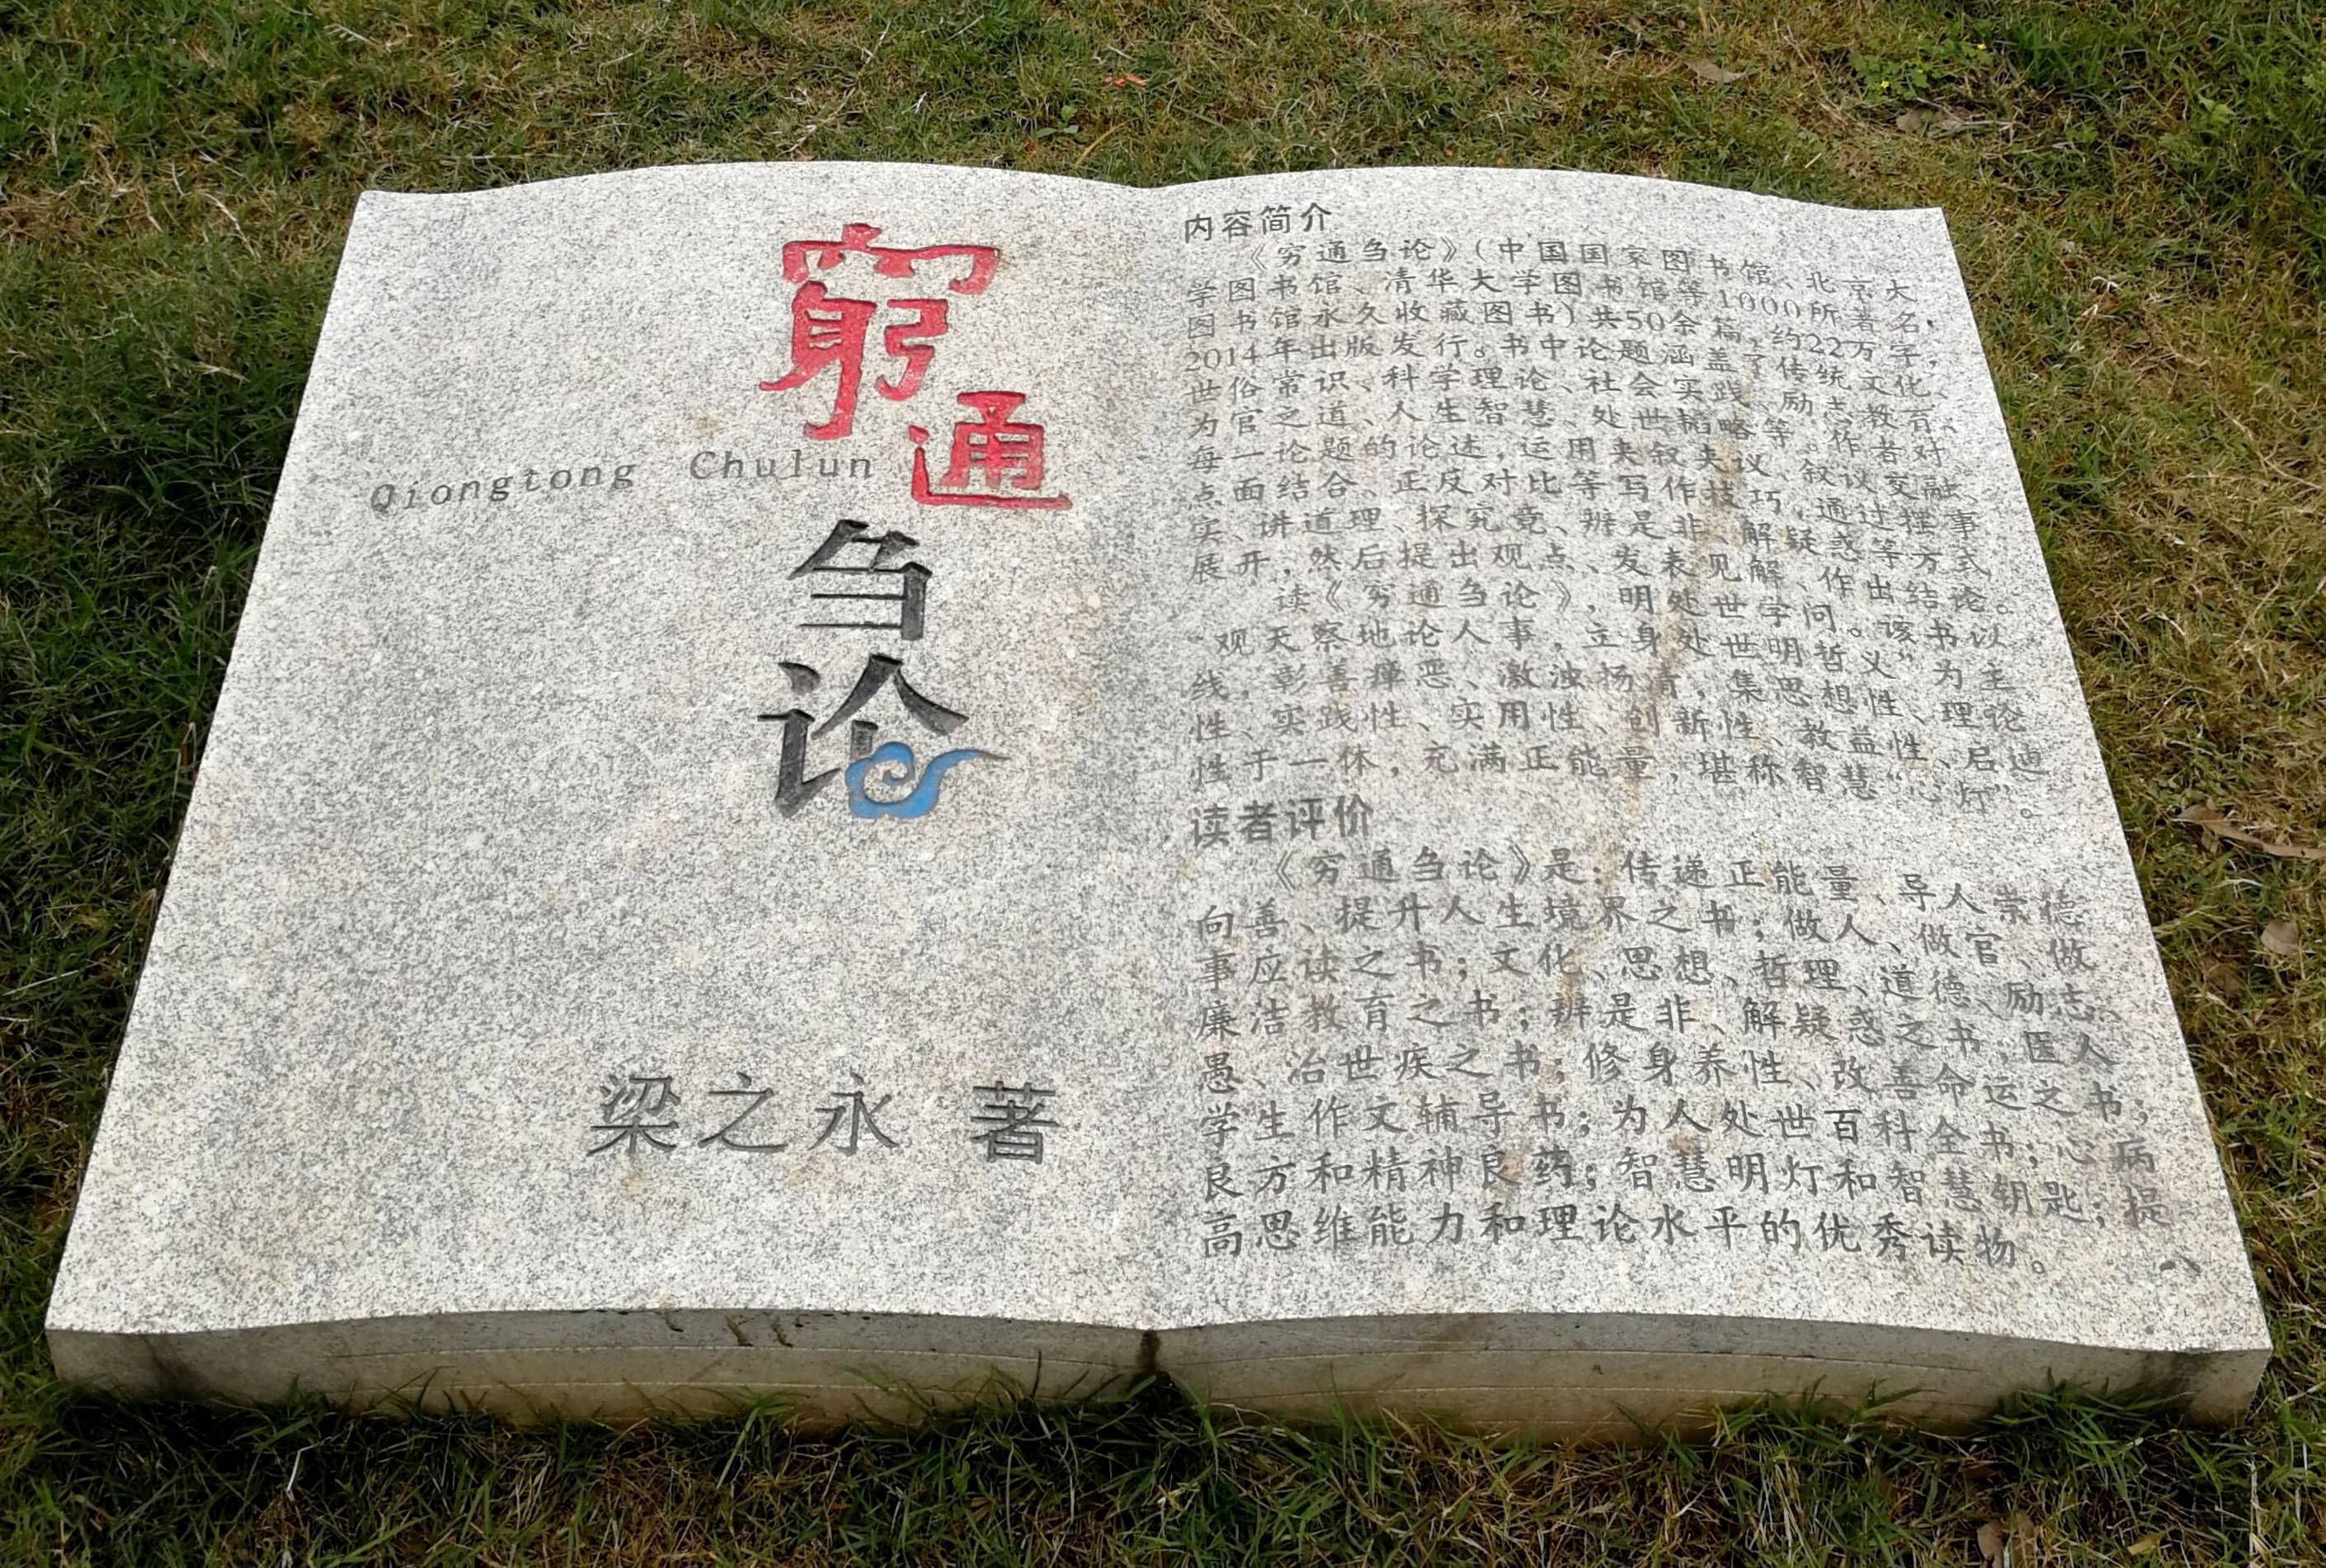 穷通
刍论
Qiongtong Chulun
梁之永 著
内容简介
《穷通刍论》(中国国家图书馆、北京大
学图书馆、清华大学图书馆等1000所著名
图书馆永久收藏图书)共50余篇,约22万字,
2014年出版发行。书中论题涵盖了传统文化、
世俗常识、科学理论、社会实践、励志教育、
为官之道、人生智慧、处世韬略等。作者对
每一论题的论述,运用夹叙夹议、叙议交融、
点面结合、正反对比等写作技巧,通过摆事
实、讲道理、探究竟、辨是非、解疑惑等方式
展开,然后提出观点、发表见解、作出结论。
读《穷通刍论》,明处世学问。该书以
“观天察地论人事,立身处世明哲义”为主
线,彰善瘅恶、激浊扬清,集思想性、理论
性、实践性、实用性、创新性、教益性、启迪
性于一体,充满正能量,堪称智慧“心灯”。
读者评价
《穷通刍论》是:传递正能量、导人崇德
向善、提升人生境界之书;做人、做官、做
事应读之书;文化、思想、哲理、道德、励志、
廉洁教育之书;辨是非、解疑惑之书,医人
愚、治世疾之书;修身养性、改善命运之书;
学生作文辅导书;为人处世百科全书;心病
良方和精神良药;智慧明灯和智慧钥匙;提
高思维能力和理论水平的优秀读物。